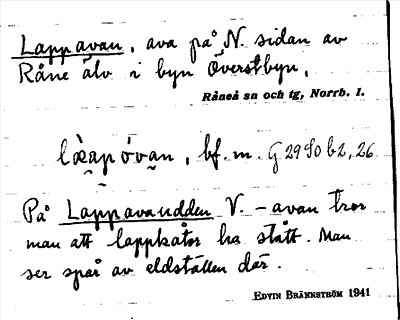 Lappavan, ava på N. sidan av
Råne älv i byn Överstbyn.
Råneå sn och tg, Norrb. l.
bf. m. G 29 S0 b 2, 26
På Lappavaudden V. – avan tror
man att lappkåtor ha stått. Man
ser spår av eldställen där.
EDVIN BRÄNNSTRÖM 1941